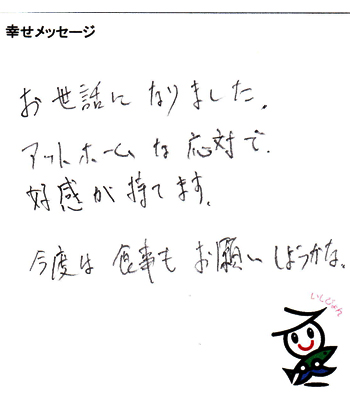 幸せメッセージ
お世話になりました。
アットホームな応対で、
好感が持てます。
今度は食事もお願いしようかな。